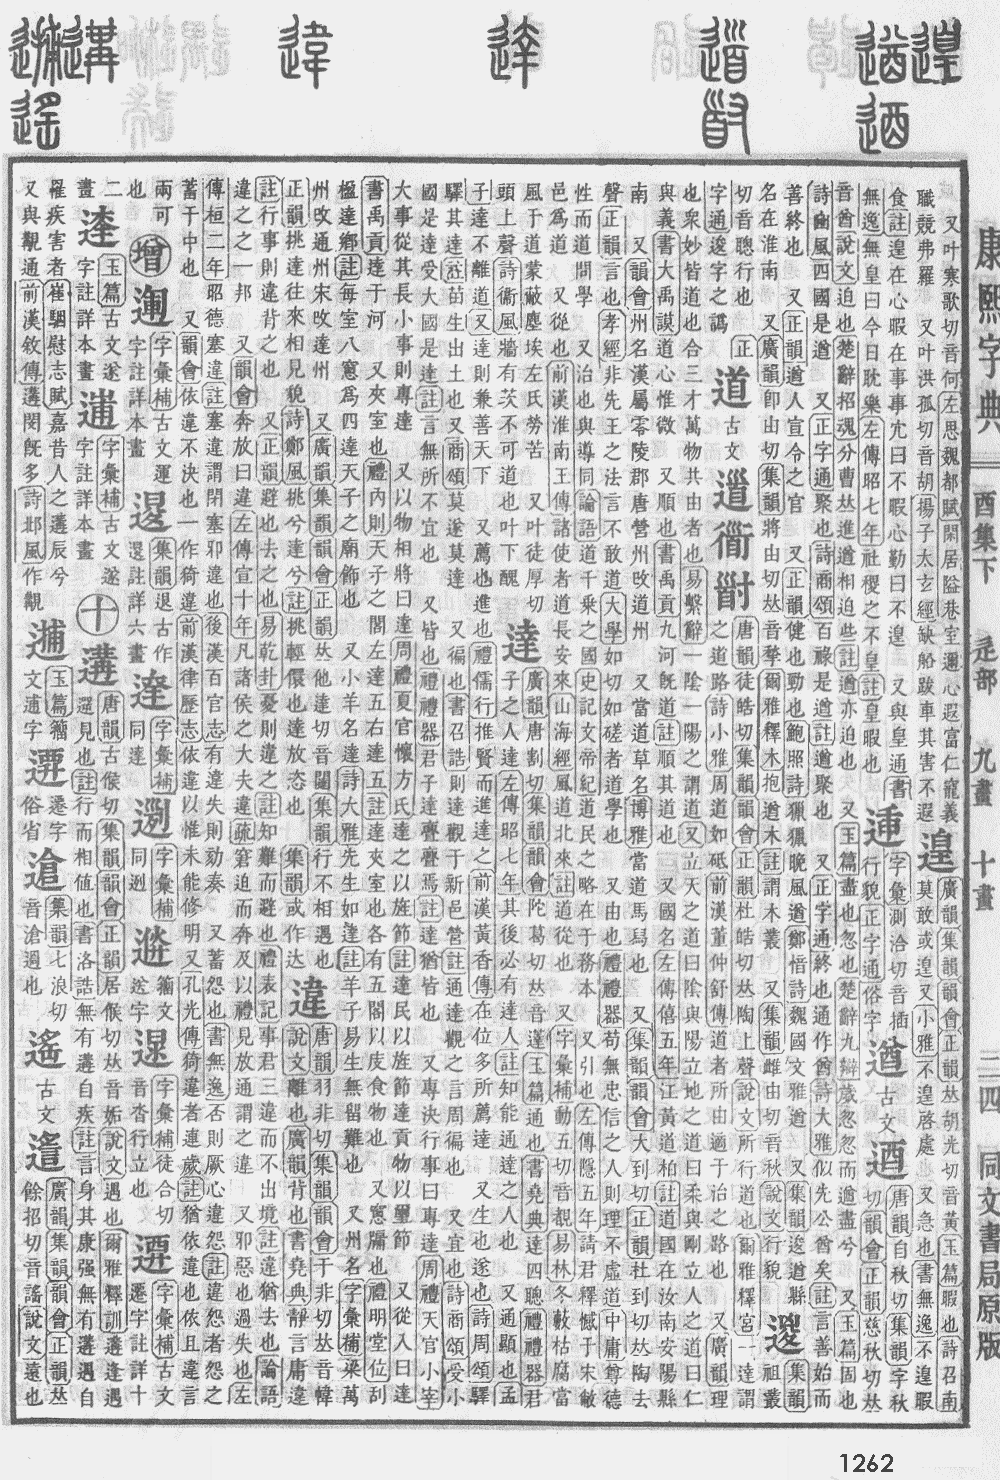 康熙字典 酉集下 辵部 九畫 十畫 三四 同文書局原版
又叶寒歌切音何左思魏都賦閑居隘巷室邇心遐富仁寵義
職競弗羅 又叶洪孤切音胡揚子太玄經缺船跋車其害不遐
遑
廣韻集韻韻會正韻𠀤胡光切音黃玉篇暇也詩召南
莫敢或遑又小雅不遑啓處 又急也書無逸不遑暇
食註遑在心暇在事事尢曰不暇心勤曰不遑 又與皇通書
無逸無皇曰今日耽樂左傳昭七年社稷之不皇註皇暇也
𨔝
字彙測洽切音插
行貌正字通俗字
遒
古文
逎
唐韻自秋切集韻字秋
切韻會正韻慈秋切𠀤
音酋說文迫也楚辭招魂分曹𠀤進遒相迫些註遒亦迫也 又玉篇盡也忽也楚辭九辯歲忽忽而遒盡兮 又玉篇固也
詩豳風四國是遒 又正字通聚也詩商頌百祿是遒註遒聚也 又正字通終也通作酋詩大雅似先公酋矣註言善始而
善終也 又正韻遒人宣令之官 又正韻健也勁也鮑照詩獵獵晚風遒鄭愔詩魏國文雅遒 又集韻逡遒縣
名在淮南 又廣韻卽由切集韻將由切𠀤音揫爾雅釋木枹遒木註謂木叢 又集韻雌由切音秋說文行貌
𨕢
集韻
祖叢
切音聰行也 正
字通逡字之譌
道
古文
𨕥衟𧗴
唐韻徒皓切集韻韻會正韻杜皓切𠀤陶上聲說文所行道也爾雅釋宮一達謂
之道路詩小雅周道如砥前漢董仲舒傳道者所由適于治之路也 又廣韻理
也衆妙皆道也合三才萬物共由者也易繫辭一陰一陽之謂道又立天之道曰陰與陽立地之道曰柔與剛立人之道曰仁
與義書大禹謨道心惟微 又順也書禹貢九河旣道註順其道也 又國名左傳僖五年江黃道柏註道國在汝南安陽縣
南 又韻會州名漢屬零陵郡唐營州攺道州 又當道草名博雅當道馬舄也 又集韻韻會大到切正韻杜到切𠀤陶去
聲正韻言也孝經非先王之法言不敢道大學如切如磋者道學也 又由也禮禮器苟無忠信之人則理不虛道中庸尊德
性而道問學 又治也與導同論語道千乘之國史記文帝紀道民之略在于務本 又引也左傳隱五年請君釋憾于宋敝
邑爲道 又從也前漢淮南王傳諸使者道長安來山海經風道北來註道從也 又字彙補動五切音覩易林冬藪枯腐當
風于道蒙蔽塵埃左氏勞苦 又叶徒厚切
頭上聲詩衞風牆有茨不可道也叶下醜
達
廣韻唐割切集韻韻會陀葛切𠀤音薘玉篇通也書堯典達四聰禮禮器君
子之人達左傳昭七年其後必有達人註知能通達之人也 又通顯也孟
子達不離道又達則兼善天下 又薦也進也禮儒行推賢而進達之前漢黃香傳在位多所薦達 又生也遂也詩周頌驛
驛其達註苗生出土也又商頌莫遂莫達 又徧也書召誥則達觀于新邑營註通達觀之言周徧也 又宜也詩商頌受小
國是達受大國是達註言無所不宜也 又皆也禮禮器君子達亹亹焉註達猶皆也 又專決行事曰專達周禮天官小宰
大事從其長小事則專達 又以物相將曰達周禮夏官懷方氏達之以旌節註達民以旌節達貢物以璽節 又從入曰達
書禹貢達于河 又夾室也禮內則天子之閣左達五右達五註達夾室也各有五閣以庋食物也 又窻牖也禮明堂位刮
楹達鄕註每室八窻爲四達天子之廟飾也 又小羊名達詩大雅先生如達註羊子易生無留難也 又州名字彙補梁萬
州攺通州宋攺達州 又廣韻集韻韻會正韻𠀤他達切音闥集韻行不相遇也
正韻挑達往來相見貌詩鄭風挑兮達兮註挑輕儇也達放恣也 集韻或作达
違
唐韻羽非切集韻韻會于非切𠀤音幃
說文離也廣韻背也書堯典靜言庸違
註行事則違背之也 又正韻避也去之也易乾卦憂則違之註知難而避也禮表記事君三違而不出境註違猶去也論語
違之之一邦 又韻會奔放曰違左傳宣十年凡諸侯之大夫違疏窘迫而奔及以禮見放通謂之違 又邪惡也過失也左
傳桓二年昭德塞違註塞違謂閉塞邪違也後漢百官志有違失則劾奏 又蓄怨也書無逸否則厥心違怨註違怨者怨之
蓄于中也 又韻會依違不決也一作猗違前漢律歷志依違以惟未能修明又孔光傳猗違者連歲註猶依違也依且違言
兩可
也
增
𨔶
字彙補古文運
字註詳本畫
𨕙
集韻退古作
𨕙註詳六畫
𨔲
字彙補
同達
𨔵
字彙補
同迾
𨔣
籀文
逆字
𨔛
字彙補徒合切
音沓行立也
𨔢
字彙補古文
遷字註詳十
二
畫
𨔷
玉篇古文遂
字註詳本畫
𨔻
字彙補古文遂
字註詳本畫
十
遘
唐韻古侯切集韻韻會正韻居候切𠀤音姤說文遇也爾雅釋訓遘逢遇
遝見也註行而相值也書洛誥無有遘自疾註言身其康强無有遘遇自
罹疾害者崔駰慰志賦嘉昔人之遘辰兮
又與覯通前漢敘傳遘閔旣多詩邶風作覯
𨕖
玉篇籀
文逋字
𨕗
遷字
俗省
𨕹
集韻七浪切
音滄過也
遙
古文
𨖚
廣韻集韻韻會正韻𠀤
餘招切音謠說文遠也
1262